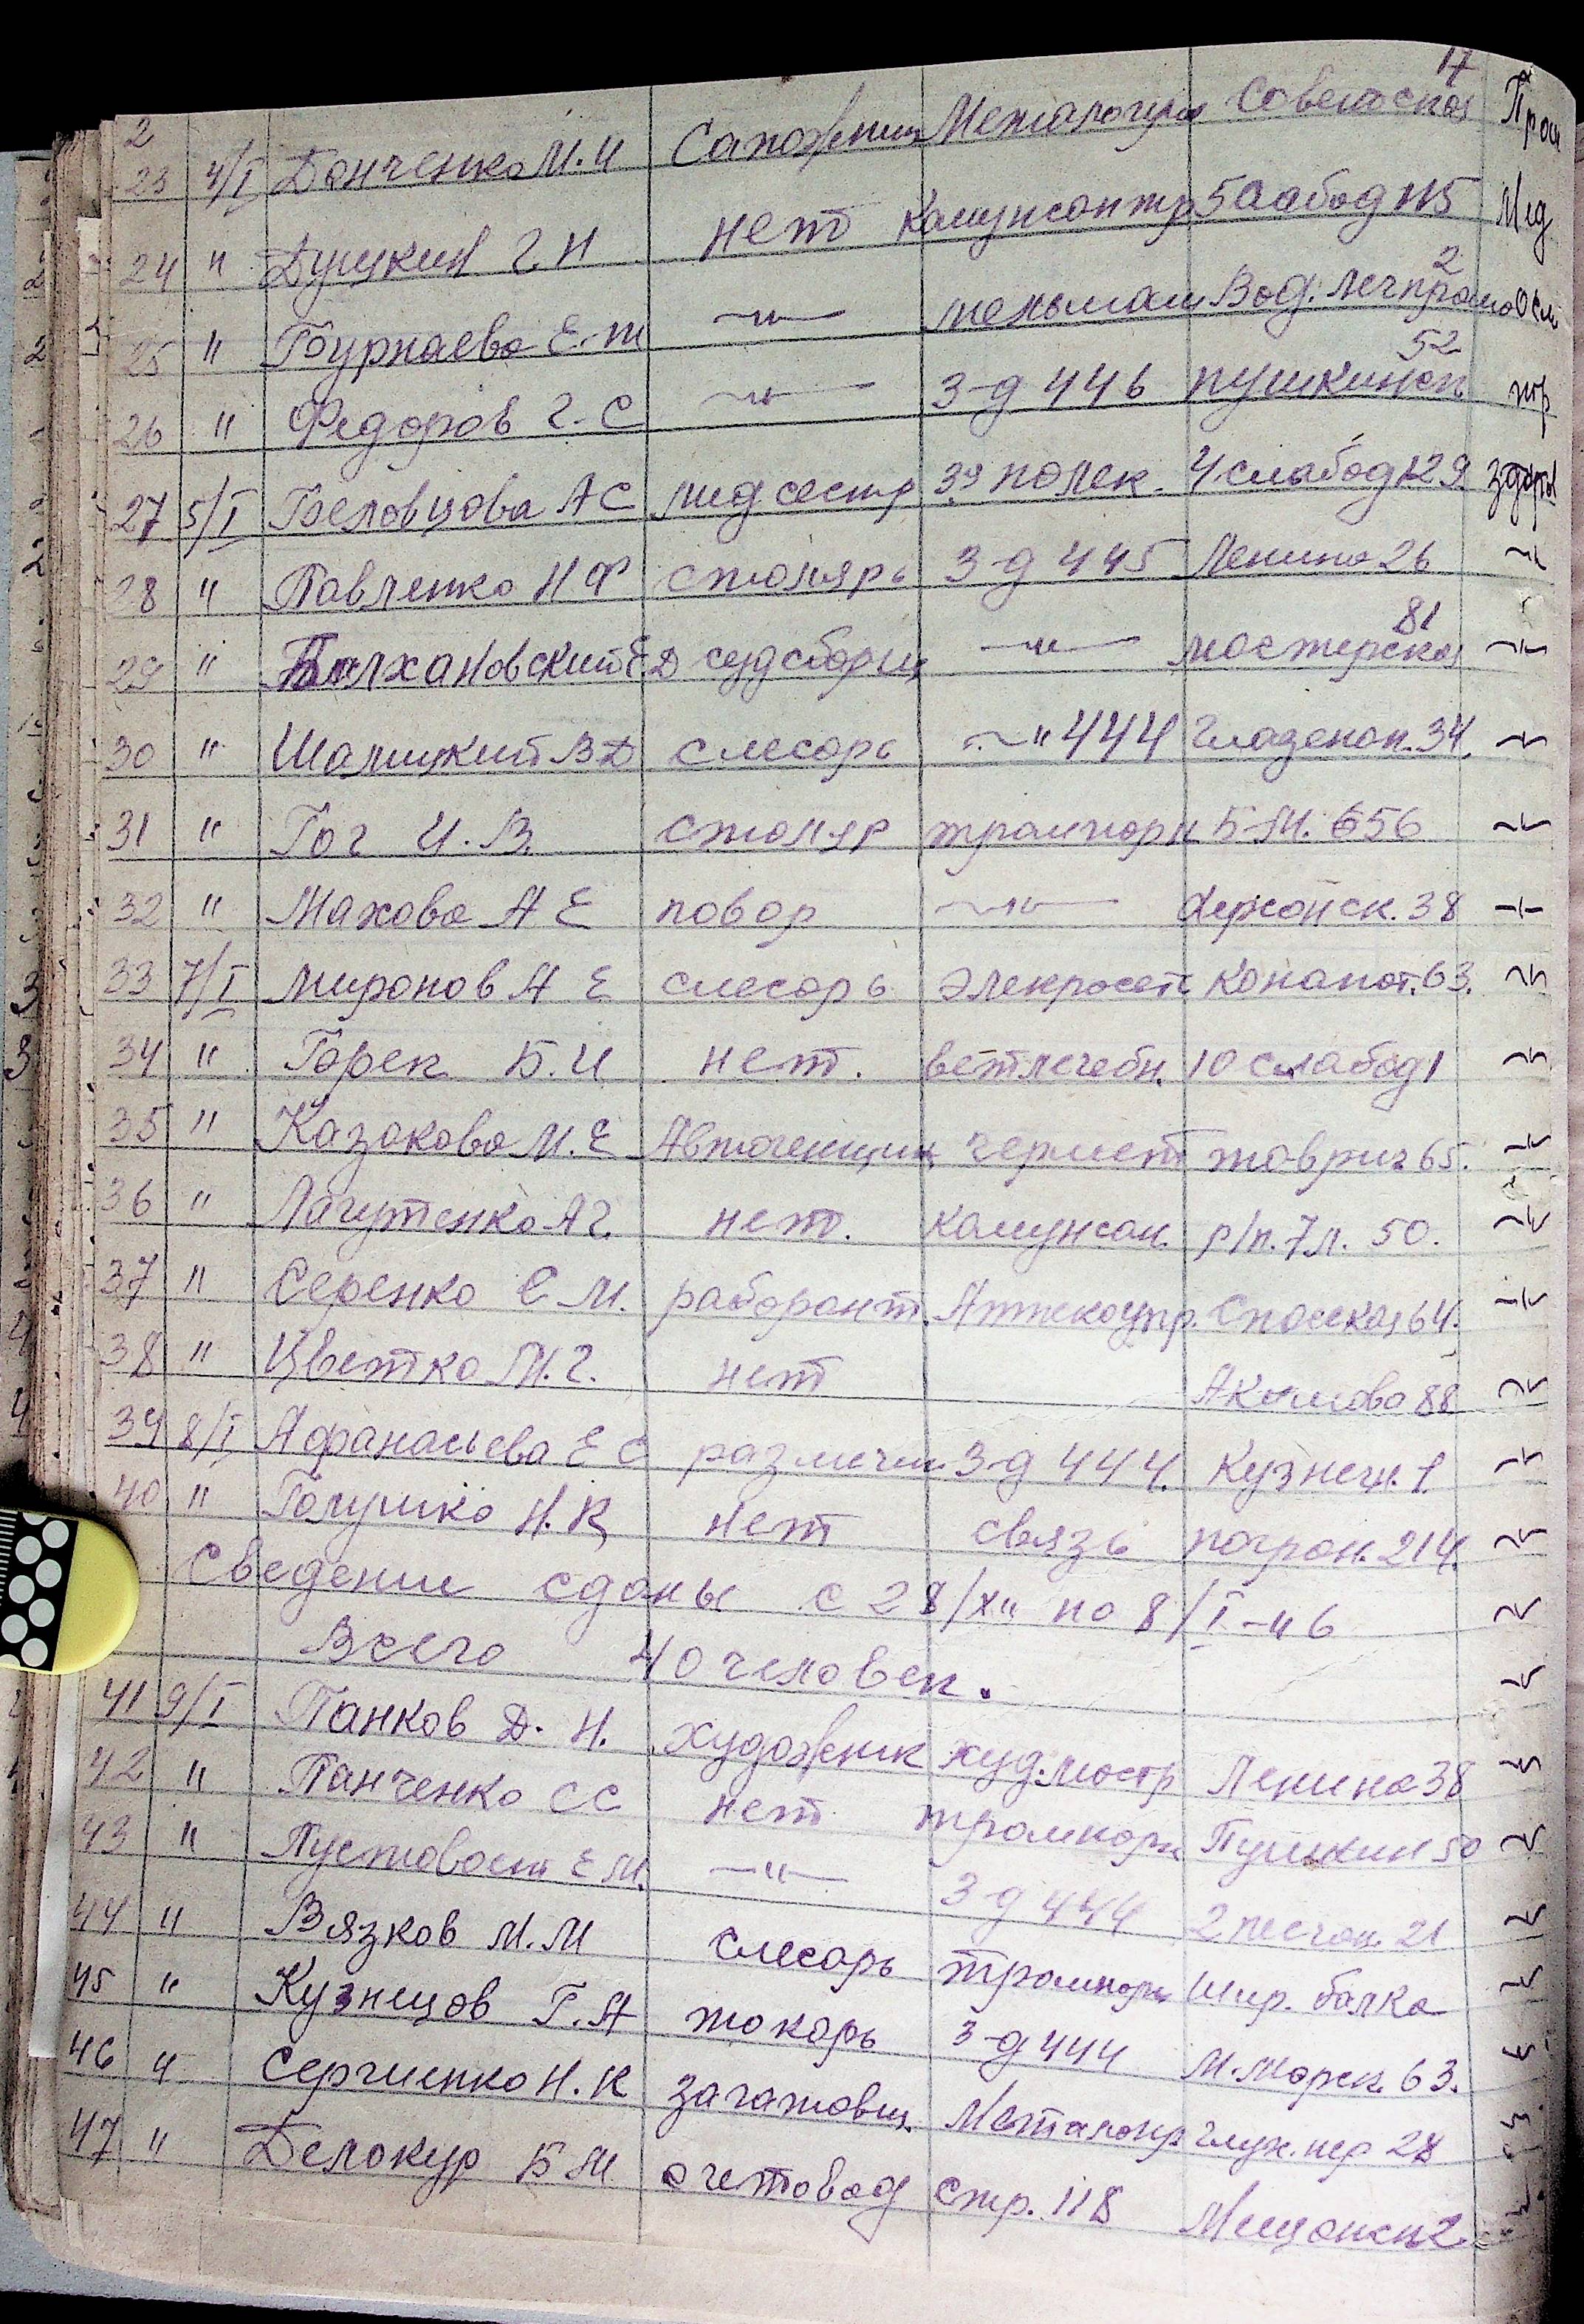 2 17
23 4/I Данченко М.И Сапожник Металогра Советская Проп
24 " Душкин Г.Н нет Комунсантр 5 слабод 115 Мед
25 " Бурнаева Е.М —"— мельмаш Вод. лечпром 2 Осм
26 " Федоров Г.С —"— З-д 446 Пушкинск 52 пр
27 5/I Беловцова АС мед сестр 3я полек. 4 слабод 129 здоры
28 " Павленко НФ столярь З-д 445 Ленина 26 —"—
29 " Балхановский ЕД судсборщ —"— мастерская 81 —"—
30 " Шалицкий ВД слесарь —"— 444 Гладеноп. 34. —"—
31 " Гоч И.В. столяр трампорт Б-М. 656 —"—
32 " Махова А Е повар —"— Херсонск. 38 —"—
33 7/I Миронов А Е слесарь Элекросеть Конапот. 63. —"—
34 " Горек Б.И нет. ветлечебн. 10 слабод 1 —"—
35 " Казакова М.Е Автогенщик чермет таврич 65. —"—
36 " Лагутенко АГ. нет. комунсан. р/п. 7 л. 50. —"—
37 " Серенко Е М. лаборант. Аптекоупр. Спасская 64. —"—
38 " Цветко М.Г. нет Акимова 88 —"—
39 8/I Афанасьева Е С размечи. З-д 444. Кузнечн. 1. —"—
40 " Голушко Н.К нет связь погран. 214. —"—
Сведение сданы с 28/XII по 8/I-46 —"—
Всего 40 человек. —"—
41 9/I Панков Д. Н. художеник худ. мастр Ленина 38 —"—
42 " Панченко СС нет трампорт Пушкин 50 —"—
43 " Пустовост Е М. —"— З-д 444 2 песчан. 21 —"—
44 " Вязков М.М слесарь трампорт Шир. балка —"—
45 " Кузнецов Г.А токарь З-д 444 М. Морск. 63. —"—
46 " Сергиенко Н.К загатовщ. Металопр Глух. пер 28
47 " Белокур Б М счетовод Стр. 118 Мещанск 2